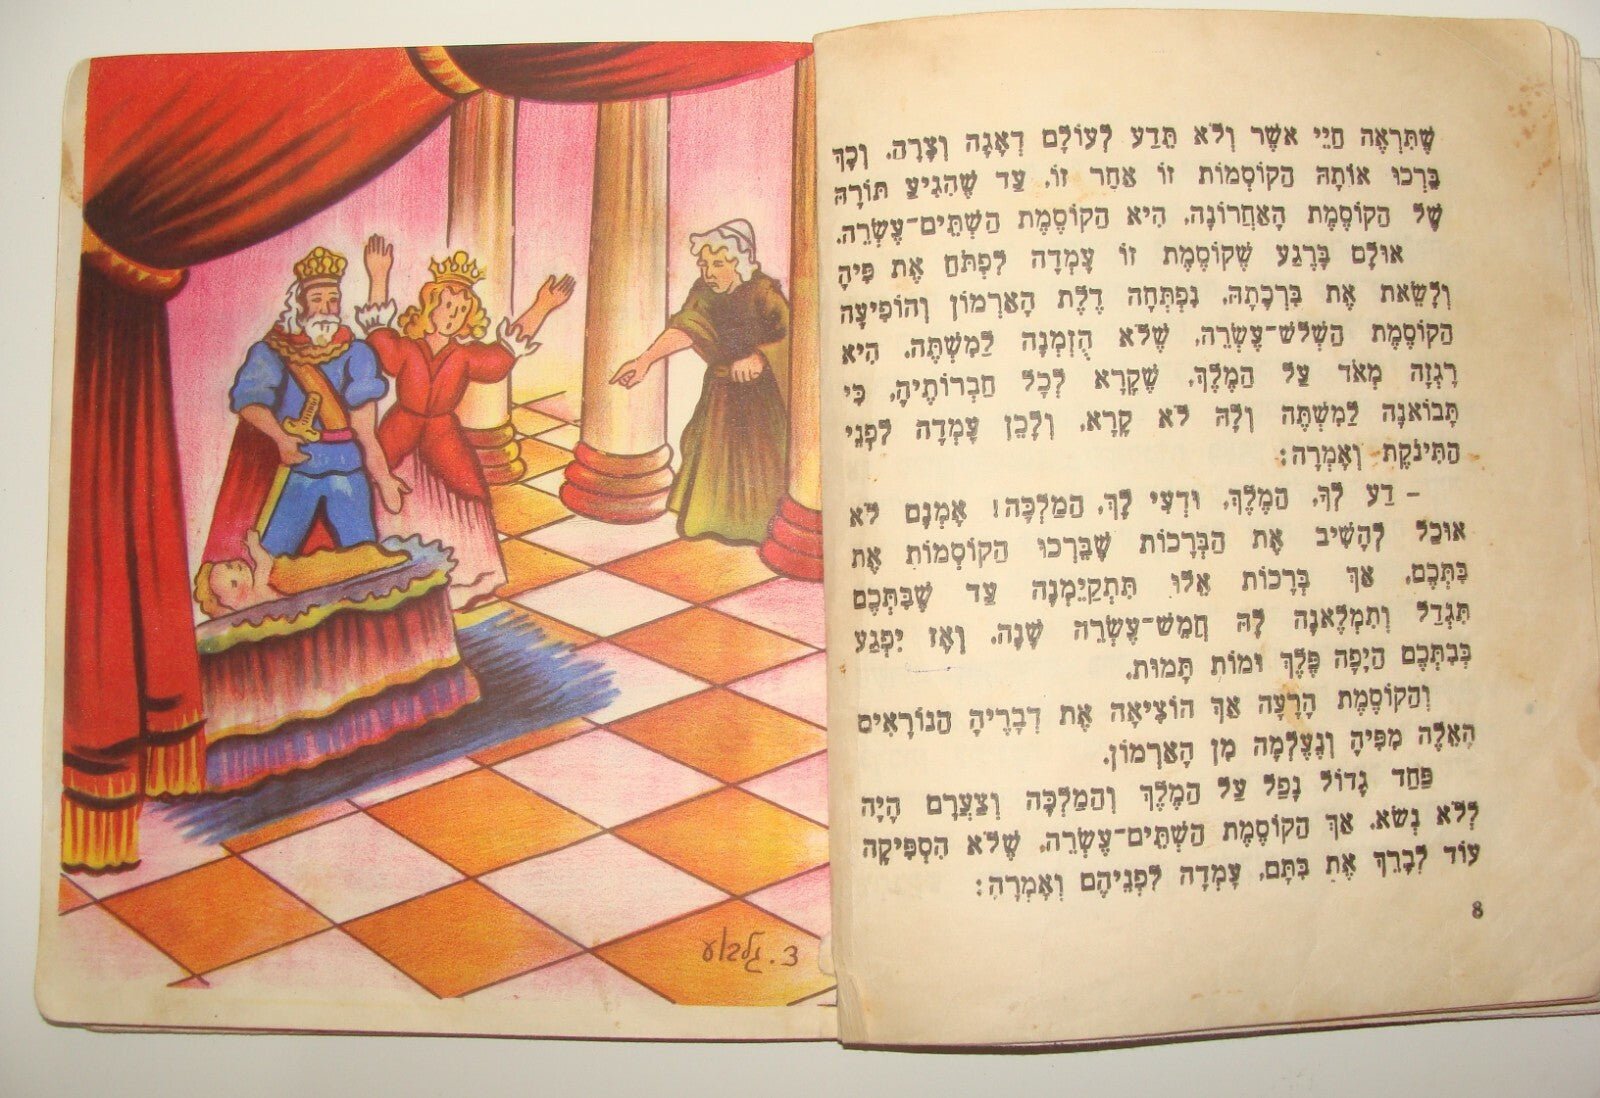 שֶׁתִּרְאֶה חַיֵּי אֹשֶׁר וְלֹא תֵּדַע לְעוֹלָם דְּאָגָה וְצָרָה. וְכָךְ
בֵּרְכוּ אוֹתָהּ הַקּוֹסְמוֹת זוֹ אַחַר זוֹ, עַד שֶׁהִגִּיעַ תּוֹרָהּ
שֶׁל הַקּוֹסֶמֶת הָאַחֲרוֹנָה, הִיא הַקּוֹסֶמֶת הַשְּׁתֵּים־עֶשְׂרֵה.
אוּלָם בָּרֶגַע שֶׁקּוֹסֶמֶת זוֹ עָמְדָה לִפְתֹּחַ אֶת פִּיהָ
וְלָשֵׂאת אֶת בִּרְכָתָהּ, נִפְתְּחָה דֶּלֶת הָאַרְמוֹן וְהוֹפִיעָה
הַקּוֹסֶמֶת הַשְּׁלֹשׁ־עֶשְׂרֵה, שֶׁלֹּא הֻזְמְנָה לַמִּשְׁתֶּה. הִיא
רָגְזָה מְאֹד עַל הַמֶּלֶךְ, שֶׁקָּרָא לְכָל חַבְרוֹתֶיהָ, כִּי
תָּבוֹאנָה לַמִּשְׁתֶּה וְלָהּ לֹא קָרָא, וְלָכֵן עָמְדָה לִפְנֵי
הַתִּינֹקֶת וְאָמְרָה:
– דַּע לְךָ, הַמֶּלֶךְ, וּדְעִי לָךְ, הַמַּלְכָּה! אָמְנָם לֹא
אוּכַל לְהָשִׁיב אֶת הַבְּרָכוֹת שֶׁבֵּרְכוּ הַקּוֹסְמוֹת אֶת
בִּתְּכֶם, אַךְ בְּרָכוֹת אֵלּוּ תִּתְקַיֵּמְנָה עַד שֶׁבִּתְּכֶם
תִּגְדַּל וְתִמְלֶאנָה לָהּ חֲמֵשׁ־עֶשְׂרֵה שָׁנָה. וְאָז יִפְגַּע
בְּבִתְּכֶם הַיָּפָה פֶּלֶךְ וּמוֹת תָּמוּת.
וְהַקּוֹסֶמֶת הָרָעָה אַךְ הוֹצִיאָה אֶת דְּבָרֶיהָ הַנּוֹרָאִים
הָאֵלֶּה מִפִּיהָ וְנֶעֶלְמָה מִן הָאַרְמוֹן.
פַּחַד גָּדוֹל נָפַל עַל הַמֶּלֶךְ וְהַמַּלְכָּה וְצַעֲרָם הָיָה
לְלֹא נְשֹׂא. אַךְ הַקּוֹסֶמֶת הַשְּׁתֵּים־עֶשְׂרֵה, שֶׁלֹּא הִסְפִּיקָה
עוֹד לְבָרֵךְ אֶת בִּתָּם, עָמְדָה לִפְנֵיהֶם וְאָמְרָה:
8
צ. גלבוע